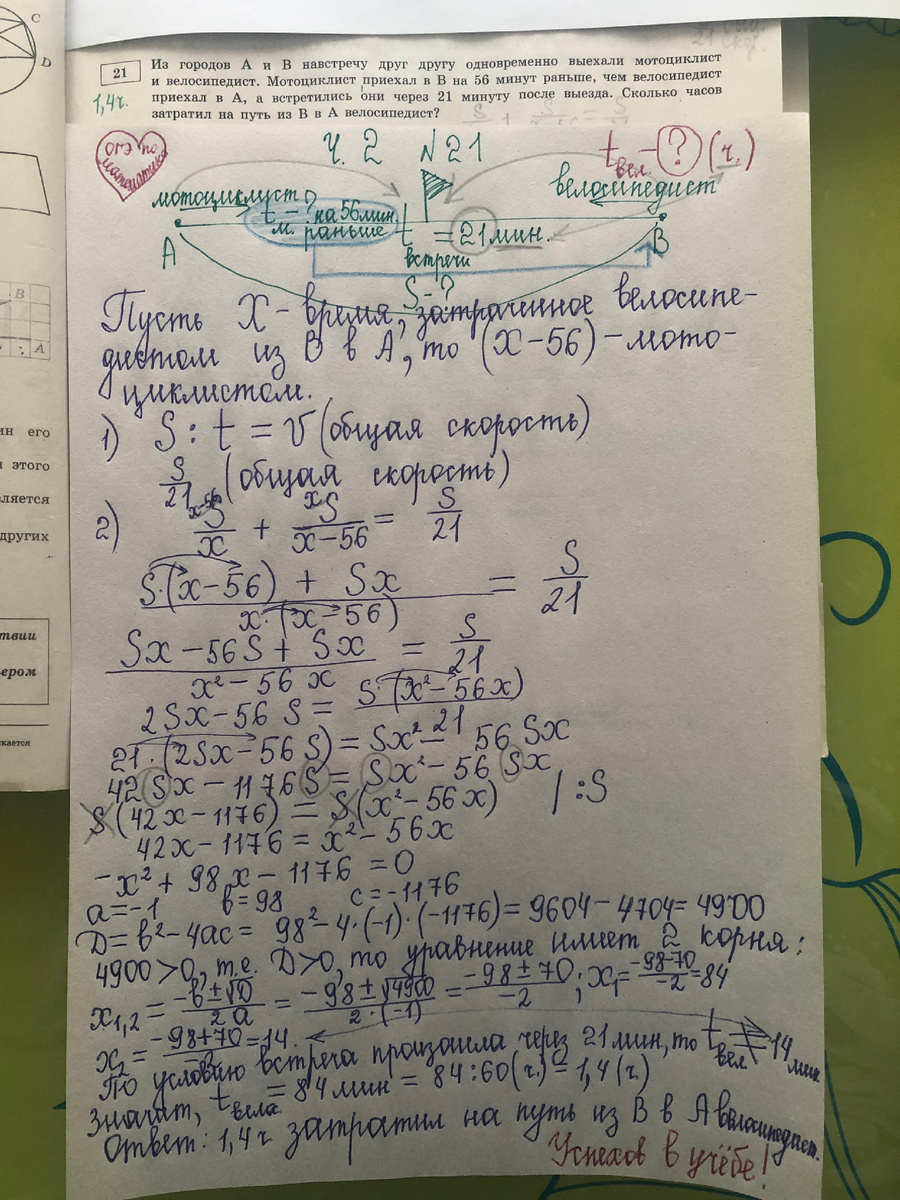 C
D
21
Из городов А и В навстречу друг другу одновременно выехали мотоциклист
и велосипедист. Мотоциклист приехал в В на 56 минут раньше, чем велосипедист
приехал в А, а встретились они через 21 минуту после выезда. Сколько часов
затратил на путь из В в А велосипедист?
1,4ч.
ОГЭ по математике
Ч. 2 №21
t вел. – ? (ч.)
мотоциклист
велосипедист
t м. – ? на 56 мин. раньше
t встречи = 21 мин.
A
B
S - ?
Пусть X - время, затраченное велосипе-
дистом из В в А, то (x-56) - мото-
циклистом.
1) S : t = V (общая скорость)
S/21 (общая скорость)
2) S/x + S/x-56 = S/21
S·(x-56) + Sx / x·(x-56) = S/21
Sx - 56S + Sx / x² - 56x = S/21
2Sx - 56S = S·(x² - 56x) / 21
21·(2Sx - 56S) = Sx² - 56Sx
42Sx - 1176S = Sx² - 56Sx
S(42x - 1176) = S(x² - 56x) | :S
42x - 1176 = x² - 56x
-x² + 98x - 1176 = 0
a = -1 b = 98 c = -1176
D = b² - 4ac = 98² - 4·(-1)·(-1176) = 9604 - 4704 = 4900
4900 > 0, т.е. D > 0, то уравнение имеет 2 корня:
x1,2 = -b ± √D / 2a = -98 ± √4900 / 2·(-1) = -98 ± 70 / -2 ; x1 = -98-70 / -2 = 84
x2 = -98+70 / -2 = 14.
По условию встреча произошла через 21 мин, то t вел ≠ 14 мин
значит, t вела = 84 мин = 84:60(ч.) = 1,4(ч.)
Ответ: 1,4 ч. затратил на путь из В в А велосипедист.
Успехов в учёбе!
B
A
ин его
этого
вляется
других
твии
ером